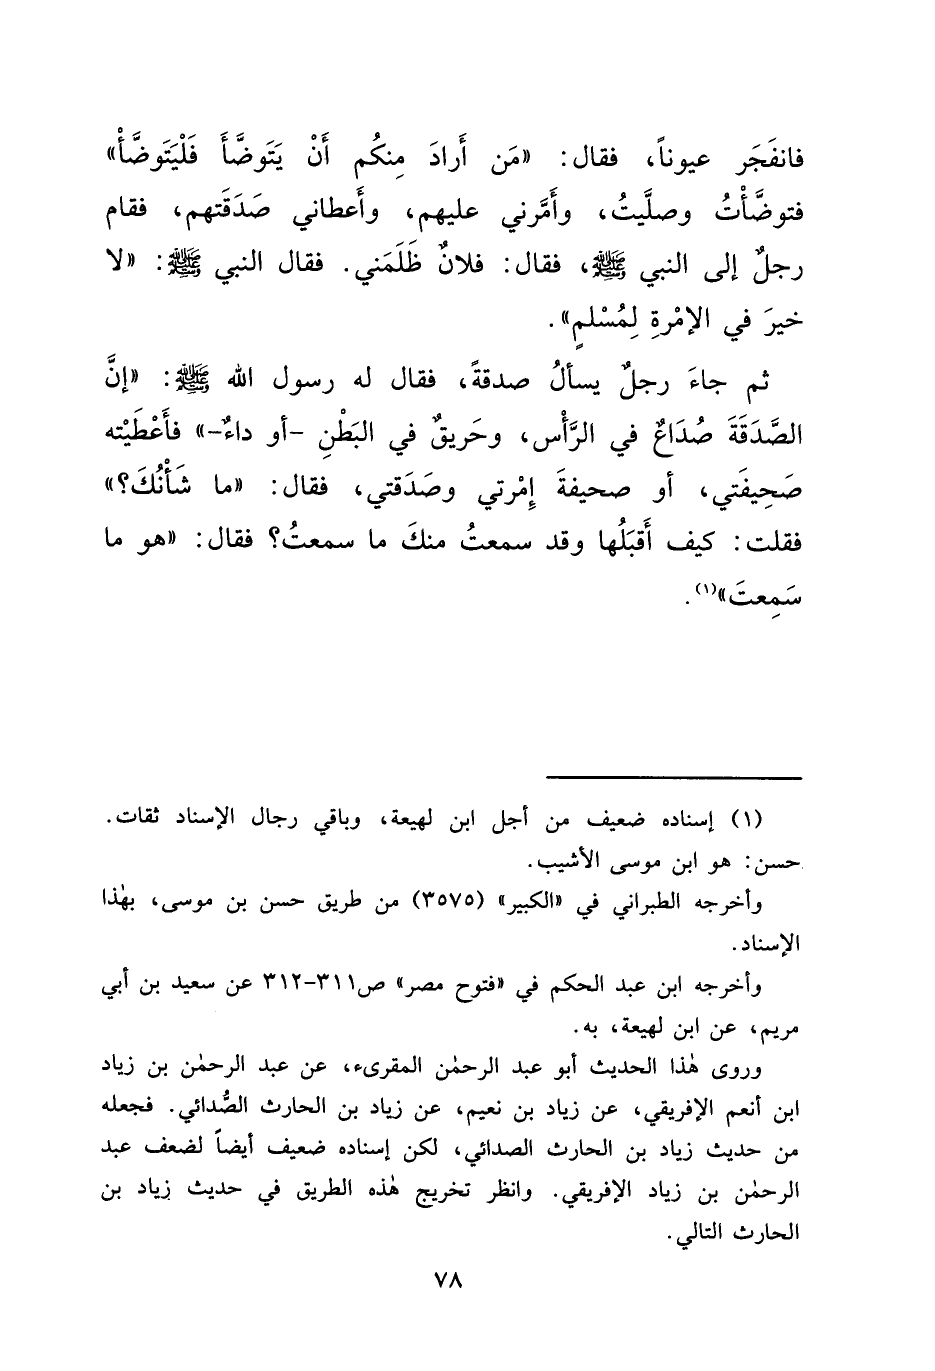 فانفَجَر عيوناً، فقال: «مَن أَرادَ مِنكُم أَنْ يَتَوضَّأَ فَلْيَتَوضَّأْ»
فتوضَّأْتُ وصلَّيتُ، وأَمَّرني عليهم، وأَعطاني صَدَقَتهم، فقام
رجلٌ إلى النبي ﷺ، فقال: فلانٌ ظَلَمَني. فقال النبي ﷺ: «لا
خيرَ في الإمْرةِ لِمُسْلمٍ».
ثم جاءَ رجلٌ يسألُ صدقةً، فقال له رسول الله ﷺ: «إنَّ
الصَّدَقَةَ صُدَاعٌ في الرَّأْس، وحَريقٌ في البَطْنِ -أو داءٌ-» فأَعْطَيْته
صَحِيفَتي، أو صحيفةَ إِمْرتي وصَدَقتي، فقال: «ما شَأْنُكَ؟»
فقلت: كيف أَقبَلُها وقد سمعتُ منكَ ما سمعتُ؟ فقال: «هو ما
سَمِعتَ»(١).
(١) إسناده ضعيف من أجل ابن لهيعة، وباقي رجال الإسناد ثقات.
حسن: هو ابن موسى الأشيب.
وأخرجه الطبراني في «الكبير» (٣٥٧٥) من طريق حسن بن موسى، بهٰذا
الإسناد.
وأخرجه ابن عبد الحكم في «فتوح مصر» ص٣١١-٣١٢ عن سعيد بن أبي
مريم، عن ابن لهيعة، به.
وروى هٰذا الحديث أبو عبد الرحمٰن المقرىء، عن عبد الرحمٰن بن زياد
ابن أنعم الإفريقي، عن زياد بن نعيم، عن زياد بن الحارث الصُّدائي. فجعله
من حديث زياد بن الحارث الصدائي، لكن إسناده ضعيف أيضاً لضعف عبد
الرحمٰن بن زياد الإفريقي. وانظر تخريج هٰذه الطريق في حديث زياد بن
الحارث التالي.
٧٨